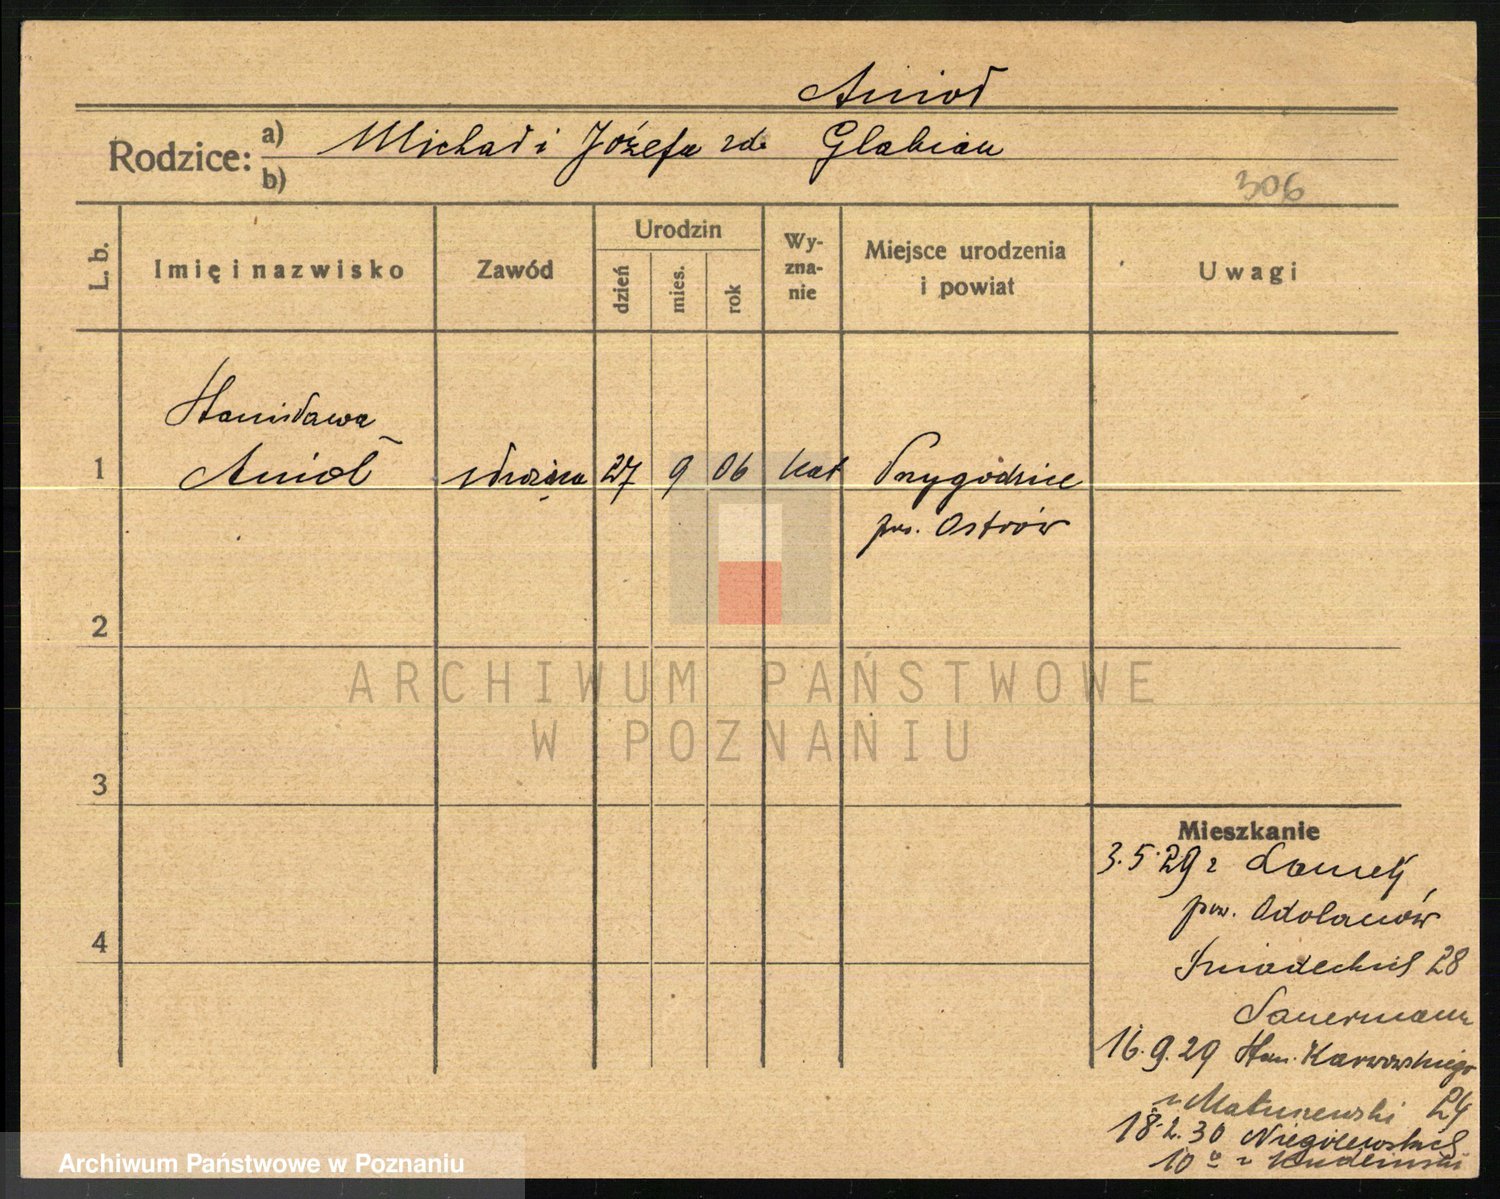 Anioł
Rodzice: a) Michał i Józefa zd. Glabian
b)
306
L. b.
Imię i nazwisko
Zawód
Urodzin
dzień
mies.
rok
Wy-
zna-
nie
Miejsce urodzenia
i powiat
Uwagi
Stanisława
1 Anioł służąca 27 9 06 kat Przygodzice
pow. Ostrów
2
3
4
ARCHIWUM PAŃSTWOWE
W POZNANIU
Mieszkanie
3.5.29 z
pow. Odolanów
Śniadeckich 28
Sauermann
16.9.29 Stan. Karwowskiego
u Matuszewski 24
18.2.30 Niegolewskich
10 a u
Archiwum Państwowe w Poznaniu